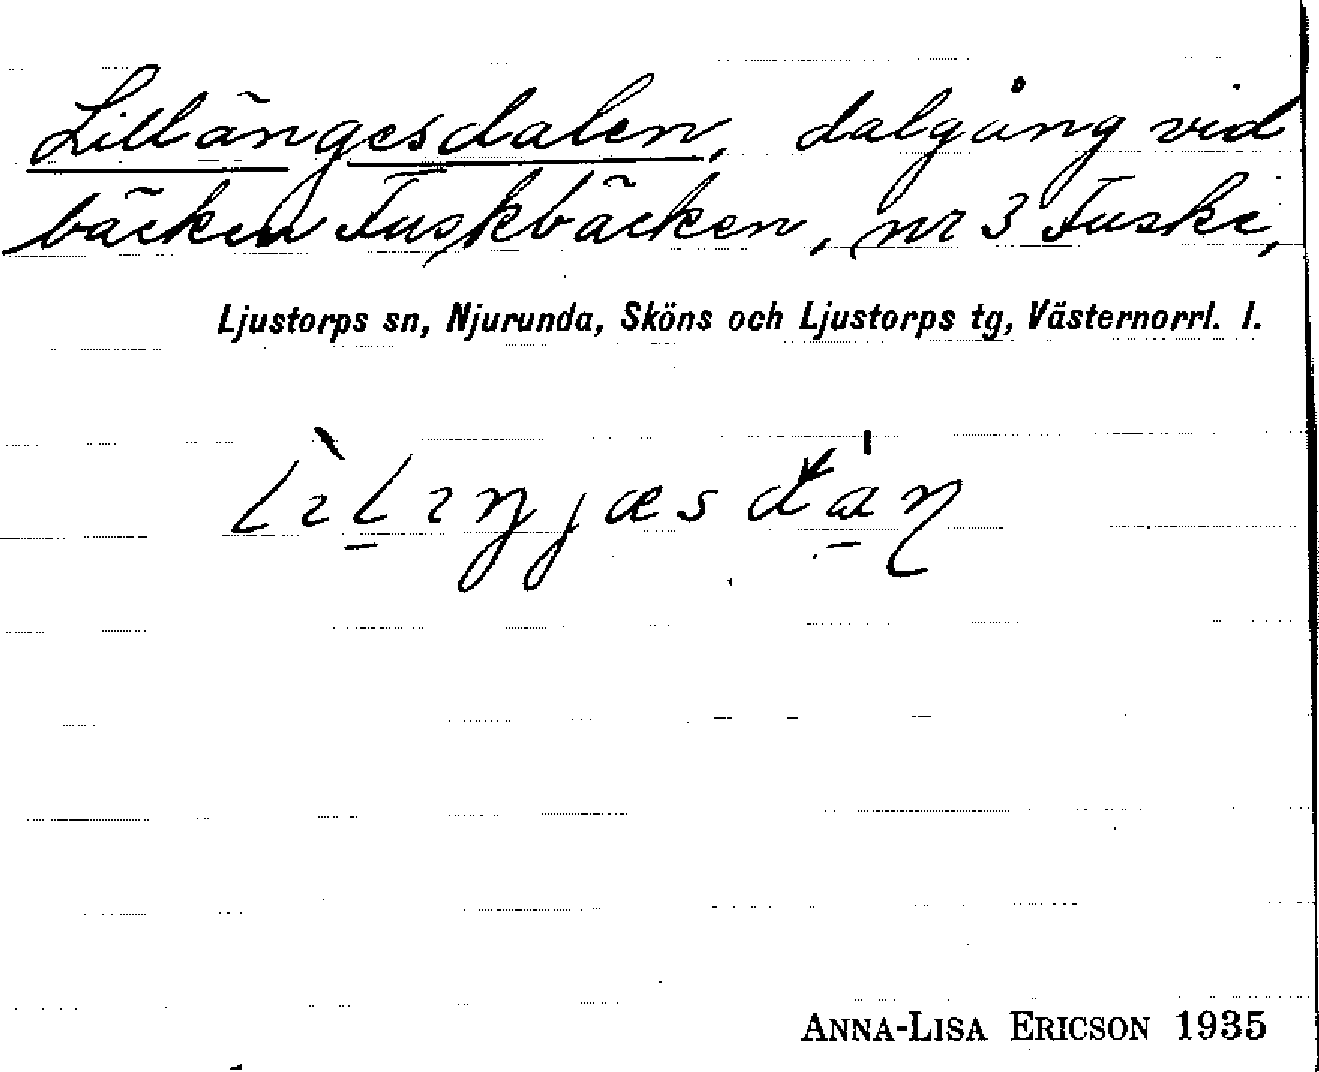 Lillängesdalen, dalgång vid
bäcken Fuskbäcken, nr 3 Fuske,
Ljustorps sn, Njurunda, Sköns och Ljustorps tg, Västernorrl. l.
ANNA-LISA ERICSON 1935